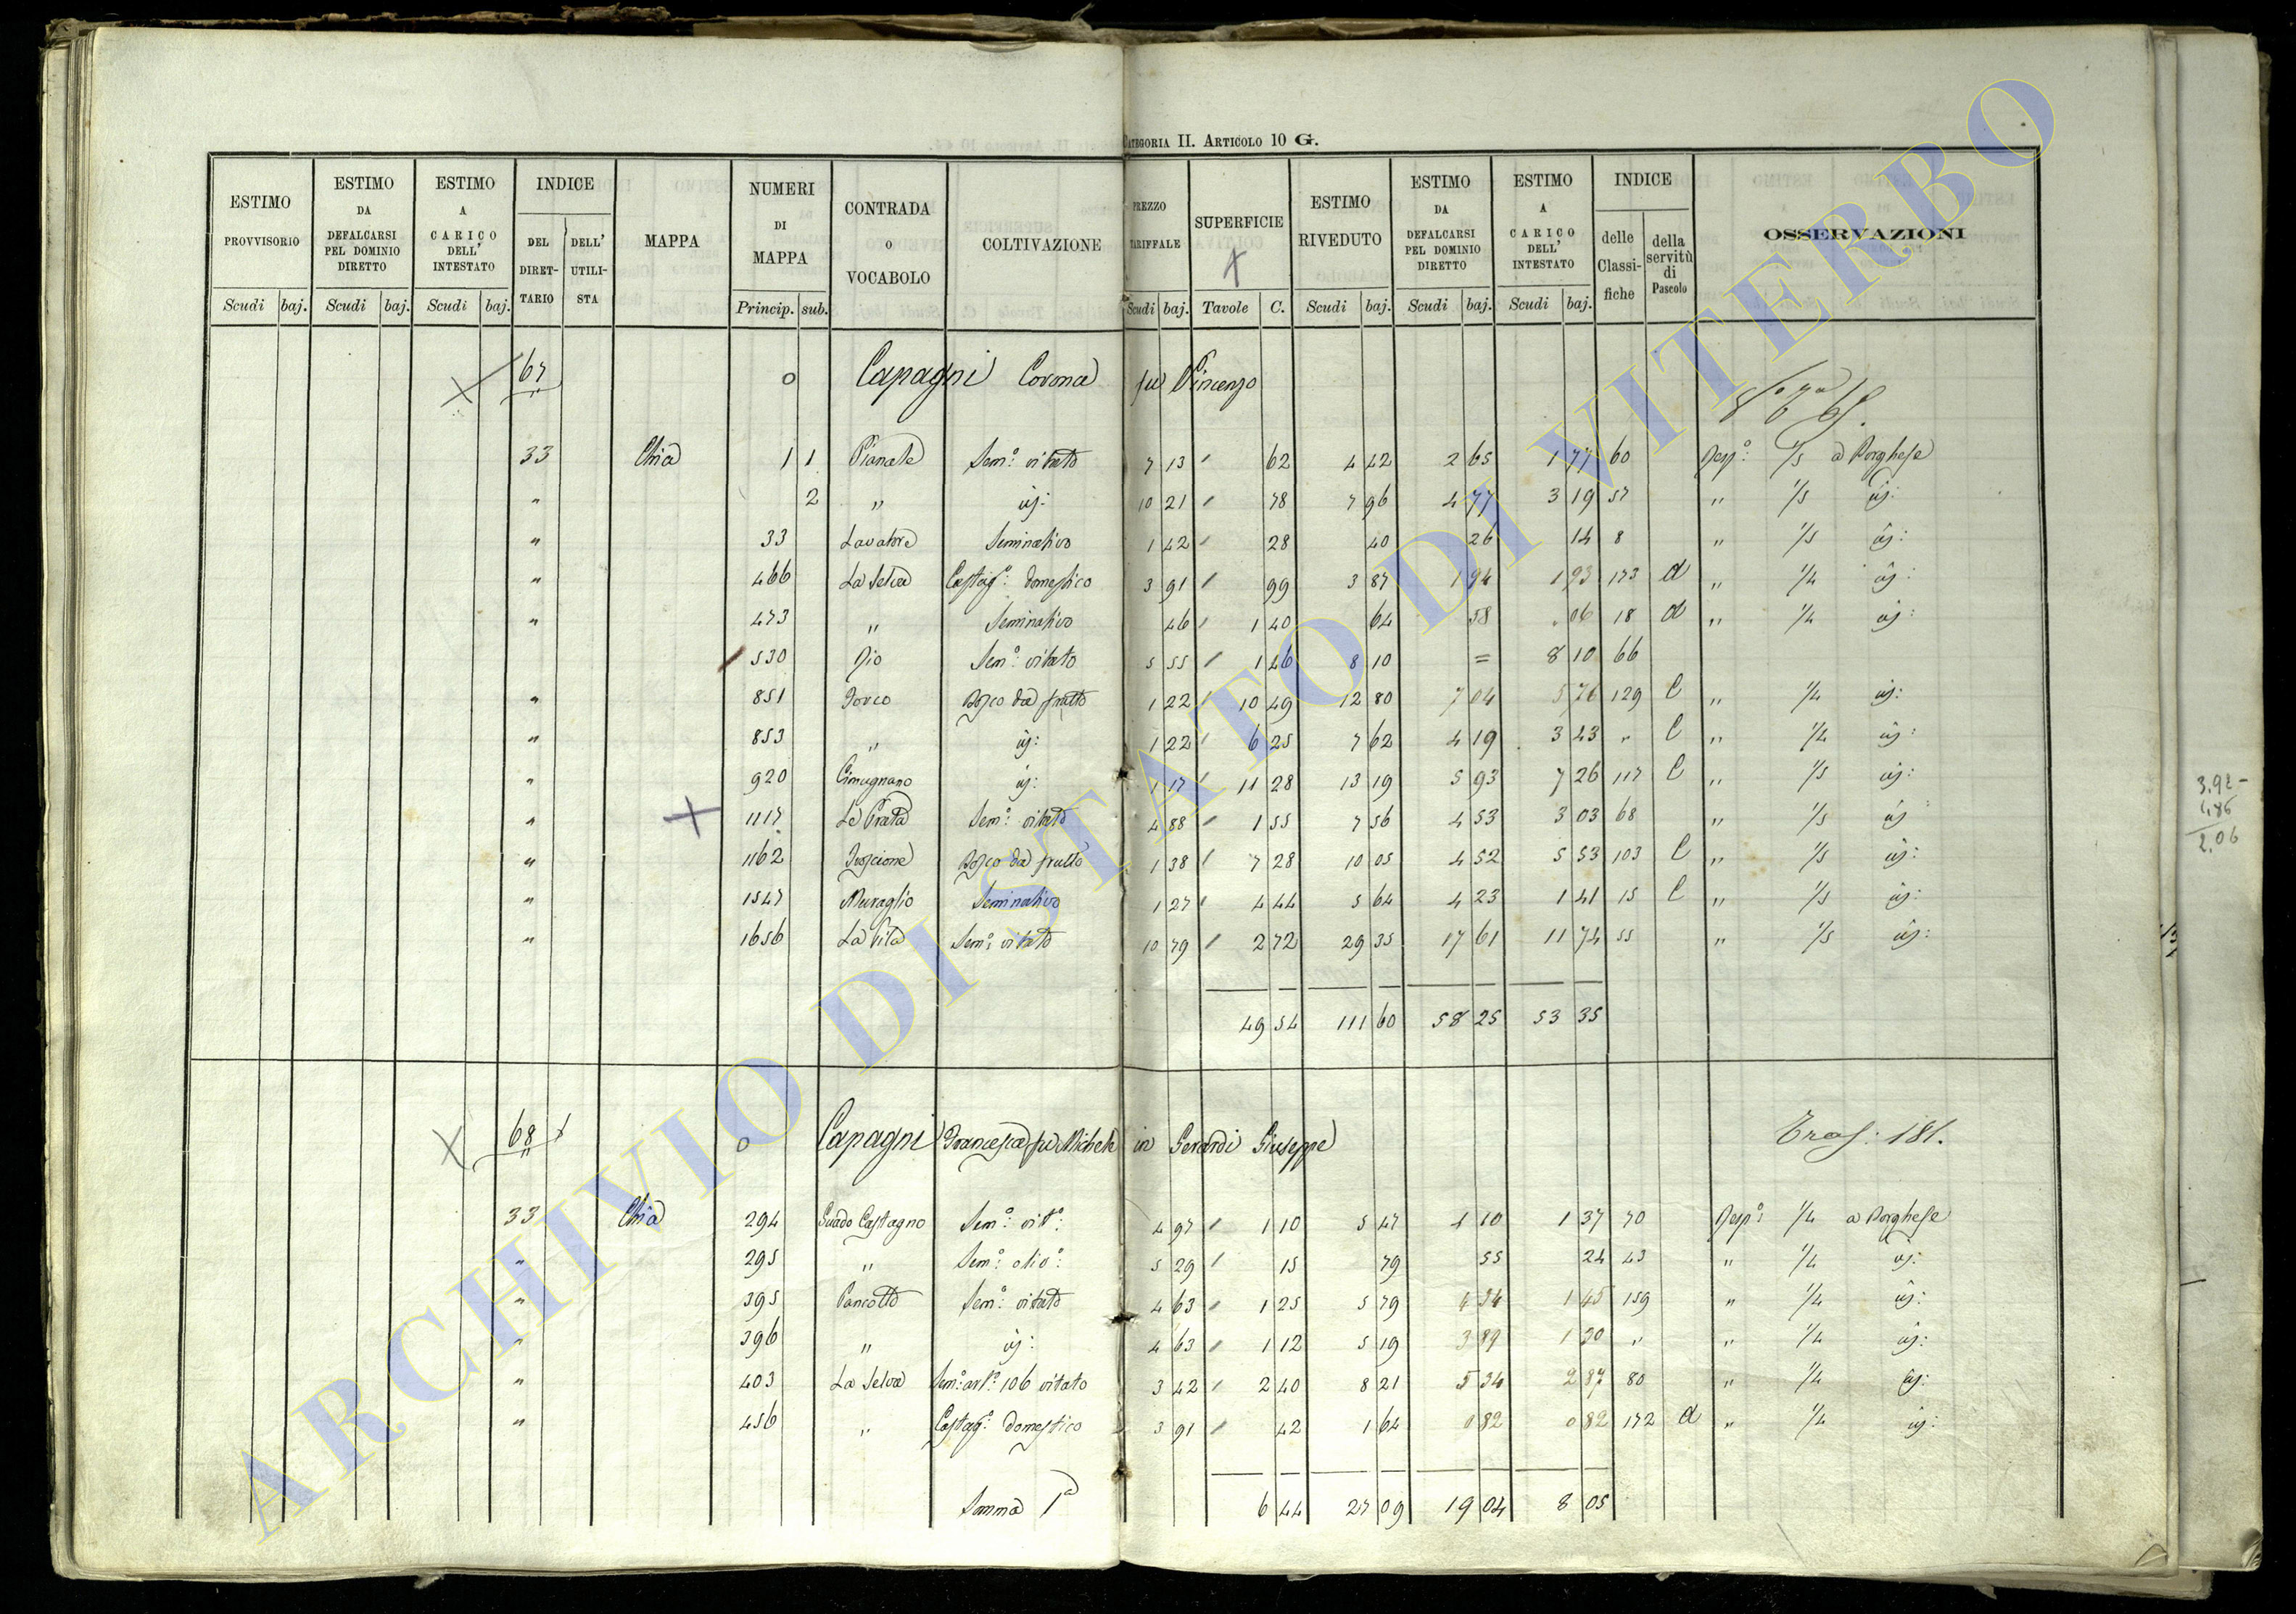 CATEGORIA II. ARTICOLO 10 G.
ESTIMO PROVVISORIO Scudi baj.
ESTIMO DA DEFALCARSI PEL DOMINIO DIRETTO Scudi baj.
ESTIMO A CARICO DELL' INTESTATO Scudi baj.
INDICE DEL DIRETTARIO DELL' UTILISTA
MAPPA
NUMERI DI MAPPA Princip. sub.
CONTRADA O VOCABOLO
COLTIVAZIONE
PREZZO TARIFFALE Scudi baj.
SUPERFICIE Tavole C.
ESTIMO RIVEDUTO Scudi baj.
ESTIMO DA DEFALCARSI PEL DOMINIO DIRETTO Scudi baj.
ESTIMO A CARICO DELL' INTESTATO Scudi baj.
INDICE delle Classifiche della servitù di Pascolo
OSSERVAZIONI
67 0 Capagni Corona fu Vincenzo
33 Chia 1 1 Pianale Sem.o vitato 7 13 62 4 42 2 65 1 77 60 Resp.o 1/5 a Borghese
" 2 " id: 10 21 78 7 96 4 77 3 19 57 " 1/5 id:
" 33 Lavatore Seminativo 1 42 28 40 26 14 8 " 1/5 id:
" 466 La Selva Castag.o domestico 3 91 99 3 87 1 94 1 93 173 d " 1/4 id:
" 473 " Seminativo 46 1 40 64 58 06 18 d " 1/4 id:
530 Rio Sem.o vitato 5 55 1 46 8 10 = 8 10 66
" 851 Porco Bosco da frutto 1 22 10 49 12 80 7 04 5 76 129 C " 1/4 id:
" 853 " id: 1 22 6 25 7 62 4 19 3 43 " C " 1/4 id:
" 920 Cimugnano id: 1 17 11 28 13 19 5 93 7 26 117 C " 1/5 id:
" 1117 Le Prata Sem.o vitato 4 88 1 55 7 56 4 53 3 03 68 " 1/5 id
" 1162 Bosco da frutto 1 38 7 28 10 05 4 52 5 53 103 C " 1/5 id:
" 1547 Muraglio Seminativo 1 27 4 44 5 64 4 23 1 41 15 C " 1/5 id:
" 1656 La Vita Sem.o vitato 10 79 2 72 29 35 17 61 11 74 55 " 1/5 id:
49 54 111 60 58 25 53 35
68 0 Capagni Francesca fu Michele in Gerardi Giuseppe Tras: 181.
33 Chia 294 Guado Castagno Sem.o vit.o 4 97 1 10 5 47 4 10 1 37 70 Resp.o 1/4 a Borghese
" 295 " Sem.o oliv.o 5 29 15 79 55 24 43 " 1/4 id:
" 395 Pancotto Sem.o vitato 4 63 1 25 5 79 4 34 1 45 159 " 1/4 id:
" 396 " id: 4 63 1 12 5 19 3 89 1 30 " " 1/4 id:
" 403 La Selva Sem.o art.o 106 vitato 3 42 2 40 8 21 5 34 2 87 80 " 1/4 id:
" 456 " Castag.o domestico 3 91 42 1 64 0 82 0 82 172 d " 1/4 id:
Somma 1a 6 44 27 09 19 04 8 05
2.06
ARCHIVIO DI STATO DI VITERBO